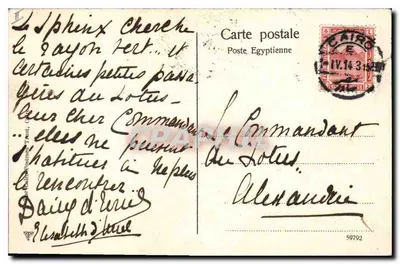 II
Le Sphinx cherche
le rayon vert... et
certaines petites passa
gères du Lotus -
leur cher Commandant
elles ne peuvent
s'habituer à ne plus
le rencontrer
Daisy d'
Elisabeth d'
Carte postale
Poste Egyptienne
CAIRO
E
IV.14 3
Le Commandant
du Lotus
Alexandrie
59792